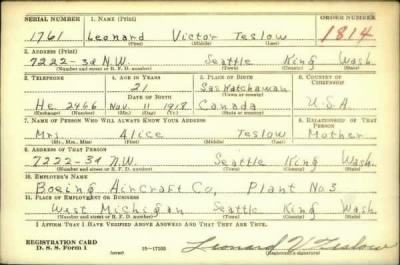 SERIAL NUMBER 1. NAME (Print) ORDER NUMBER
1761 Leonard Victor Teslow 1814
(First) (Middle) (Last)
2. ADDRESS (Print)
7222-3d N.W. Seattle King Wash.
(Number and street or R. F. D. number) (Town) (County) (State)
3. TELEPHONE 4. AGE IN YEARS 5. PLACE OF BIRTH 6. COUNTRY OF CITIZENSHIP
21 Saskatchawan
DATE OF BIRTH (Town or county)
He. 2466 Nov. 11 1918 Canada U.S.A.
(Exchange) (Number) (Mo.) (Day) (Yr.) (State or country)
7. NAME OF PERSON WHO WILL ALWAYS KNOW YOUR ADDRESS 8. RELATIONSHIP OF THAT PERSON
Mrs. Alice Teslow Mother
(Mr., Mrs., Miss) (First) (Middle) (Last)
9. ADDRESS OF THAT PERSON
7222-3d N.W. Seattle King Wash.
(Number and street or R. F. D. number) (Town) (County) (State)
10. EMPLOYER'S NAME
Boeing Aircraft Co, Plant No3
11. PLACE OF EMPLOYMENT OR BUSINESS
West Michigan Seattle King Wash.
(Number and street or R. F. D. number) (Town) (County) (State)
I AFFIRM THAT I HAVE VERIFIED ABOVE ANSWERS AND THAT THEY ARE TRUE.
REGISTRATION CARD
D. S. S. Form 1 (over) 16—17105 Leonard V. Teslow
(Registrant's signature)